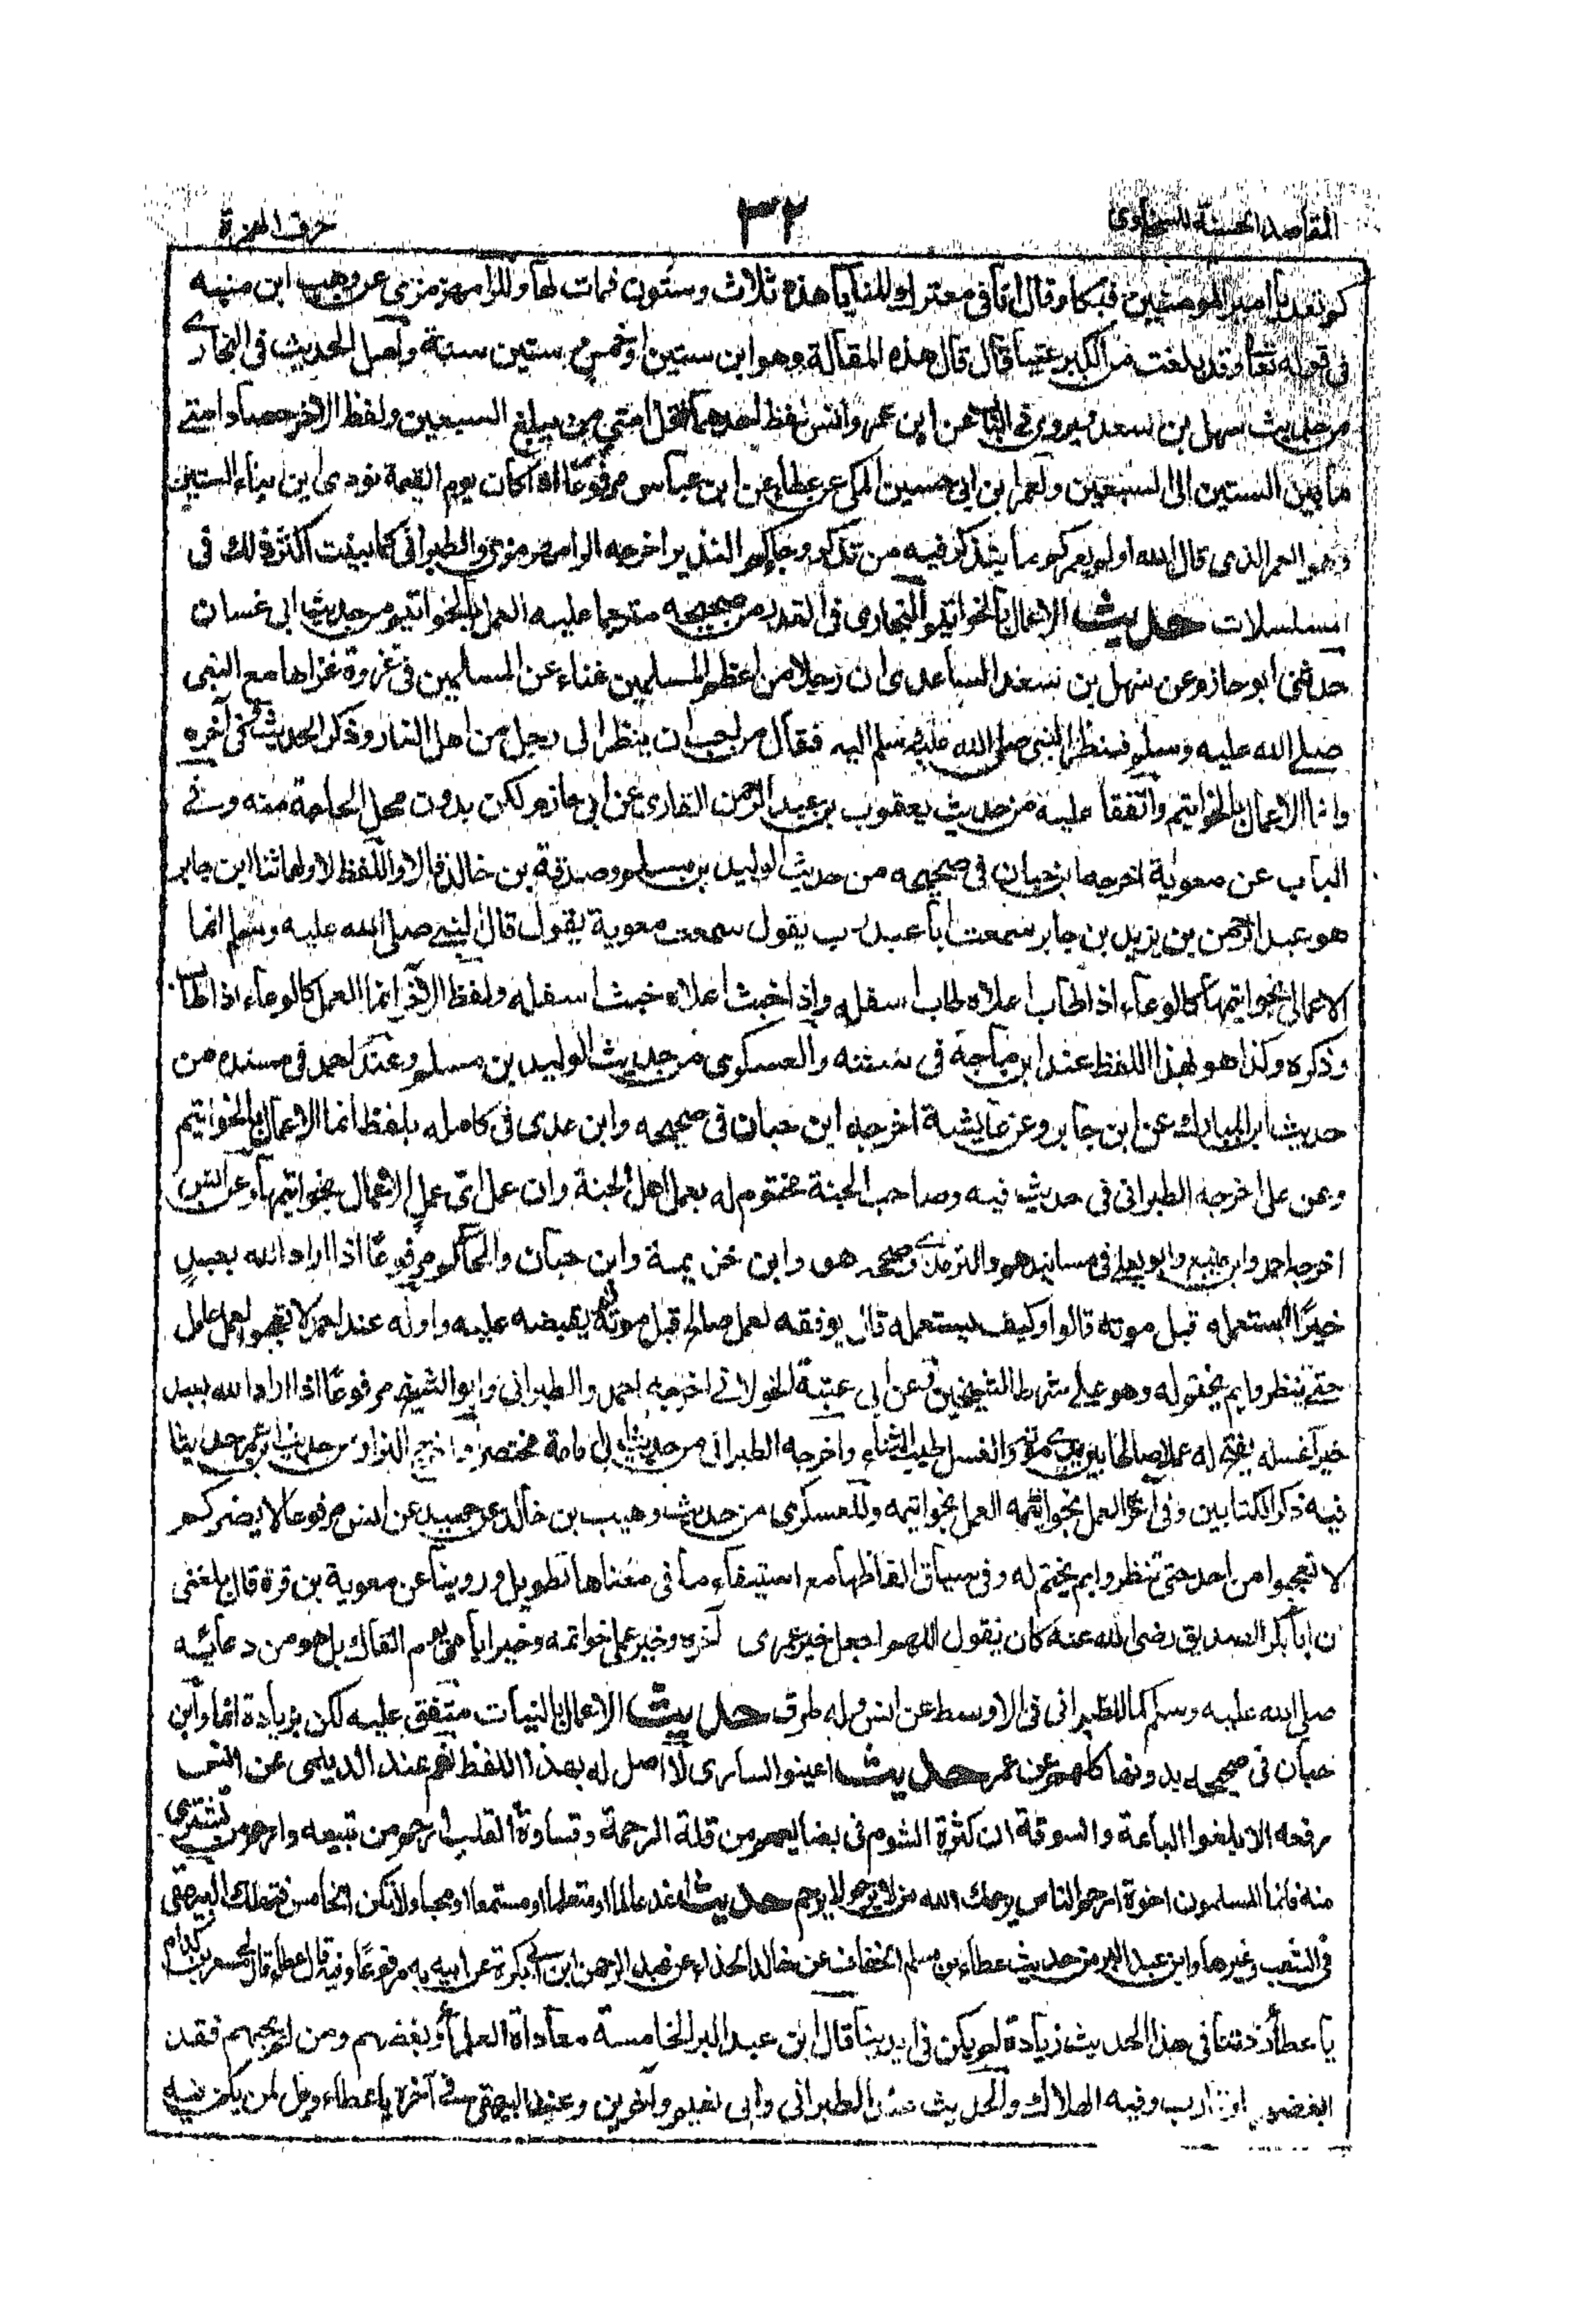 المقاصد الحسنة للسخاوى ٣٢ حرف الهمزة
كم نعد يا امير المومنين فبكا وقال انا فى معترك المنايا هذه ثلاث وستون فمات لها وللرامهرمزى عن وهب ابن منبه
فى قوله تعا وقد بلغت من الكبر عتيا قال قال هذه المقالة وهو ابن ستين او خمس و ستين سنة واصل الحديث فى البخارى
من حديث سهل بن سعد ويروى فى الباب عن ابن عمر وانس لفظ احدهما اقل امتى من يبلغ السبعين ولفظ الاخر حصاد امتى
ما بين الستين الى السبعين ولعمر ابن ابى حسين المكى عن عطاء عن ابن عباس مرفوعًا اذا كان يوم القيمة نودى اين بناء الستين
وهو العمر الذى قال الله اولم نعمركم ما يتذكر فيه من تذكر وجاءكم النذير اخرجه الرامهرمزى والطبرانى كما بينت اكثر ذلك فى
المسلسلات حديث الاعمال بالخواتيم البخارى فى القدر من صحيحه مترجما عليه العمل بالخواتيم من حديث ابى غسان
حدثنى ابو حازم عن سهل بن سعد الساعدى ان رجلا من اعظم المسلمين غناء عن المسلمين فى غزوة غزاها مع النبى
صلى الله عليه وسلم فنظر النبى صلى الله عليه وسلم اليه فقال من احب ان ينظر الى رجل من اهل النار وذكر الحديث وفى آخره
وانما الاعمال بالخواتيم واتفقا عليه من حديث يعقوب بن عبد الرحمن القارى عن ابى حازم لكن بدون محل الحاجة منه وفى
الباب عن معوية اخرجه ابن حبان فى صحيحه من حديث الوليد بن مسلم وصدقة بن خالد قالا واللفظ لاولهما ثنا ابن جابر
هو عبد الرحمن بن يزيد بن جابر سمعت ابا عبد رب يقول سمعت معوية يقول قال النبى صلى الله عليه وسلم انما
الاعمال بخواتيمها كالوعاء اذا طاب اعلاه طاب اسفله واذا خبث اعلاه خبث اسفله ولفظ الآخر انما العمل كالوعاء اذا طاب
وذكره وكذا هو بهذا اللفظ عند ابن ماجة فى سننه والعسكرى من حديث الوليد بن مسلم وعند احمد فى مسنده من
حديث ابن المبارك عن ابن جابر وعن عايشة اخرجه ابن حبان فى صحيحه وابن عدى فى كامله بلفظ انما الاعمال بالخواتيم
وعن على اخرجه الطبرانى فى حديث فيه وصاحب الجنة مختوم له بعمل اهل الجنة وان عمل اى عمل الاعمال بخواتيمها وعن انس
اخرجه احمد وابن منيع وابو يعلى فى مسانيدهم والترمذى وصححه هو وابن خزيمة وابن حبان والحاكم مرفوعًا اذا اراد الله بعبدٍ
خيرًا استعمله قبل موته قالوا وكيف يستعمله قال يوفقه لعمل صالح قبل موته ثم يقبضه عليه واوله عند احمد لا تعجبوا لعمل عامل
حتى تنظروا بم يختم له وهو على شرط الشيخين وعن ابى عتبة الخولانى اخرجه احمد والطبرانى وابو الشيخ مرفوعًا اذا اراد الله بعبد
خيرا عسله يفتح له عملا صالحا بين يدى موته والعسل طيب الثناء واخرجه الطبرانى من حديث ابى امامة مختصرا واخرج البزار من حديث ابن عمر حديثا
فيه ذكر الكتابين وفى آخره العمل بخواتيمه العمل بخواتيمه وللعسكرى من حديث وهيب بن خالد عن حميد عن انس مرفوعا لا يضركم
لا تعجبوا من احد حتى تنظروا بم يختم له وفى سياق الفاظها مع استيفاء ما فى معناها تطويل وروينا عن معوية بن قرة قال بلغنى
ان ابا بكر الصديق رضى الله عنه كان يقول اللهم اجعل خير عمرى آخره وخير عملى خواتمه وخير ايامى يوم القاك بل هو من دعائه
صلى الله عليه وسلم كما للطبرانى فى الاوسط عن انس وله طرق حديث الاعمال بالنيات متفق عليه لكن بزيادة انما وابن
حبان فى صحيحه بدونها كلهم عن عمر حديث اعينوا السارى لا اصل له بهذا اللفظ نعم عند الديلمى عن انس
رفعه الا بلغوا الباعة والسوقة ان كثرة الشوم فى بضايعهم من قلة الرحمة وقساوة القلب ارحم من تبيعه وارحم من تشترى
منه فانما المسلمون اخوة ارحم الناس يرحمك الله من لا يرحم لا يرحم حديث اغد عالما او متعلما او مستمعا او محبا ولا تكن الخامس فتهلك البيهقى
فى الشعب وغيرها وابن عبد البر من حديث عطاء بن مسلم الخفاف عن خالد الحذاء عن عبد الرحمن ابن ابى بكرة عن ابيه به مرفوعًا وفيه قال عطاء قال لى مسعر بن كدام
يا عطاء زدتنا فى هذا الحديث زيادة لم يكن فى ايدينا قال ابن عبد البر الخامسة معاداة العلماء وبغضهم ومن لم يحبهم فقد
ابغضهم او قارب وفيه الهلاك والحديث عند الطبرانى وابى نعيم وآخرين وعند البيهقى فى آخره يا عطاء ويل لمن يكن فيه